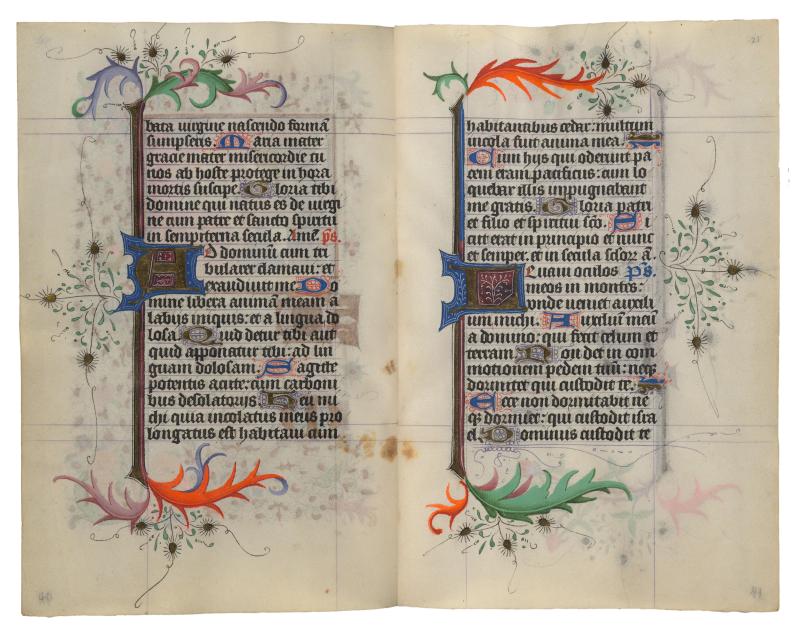 bata uirgine nascendo formā
sumpseris. Maria mater
gracie mater misericordie tu
nos ab hoste protege in hora
mortis suscipe. Gloria tibi
domine qui natus es de uirgi
ne cum patre et sancto spiritu
in sempiterna secula. Amē. p̄s.
Ad dominū cum tri
bularer clamaui: et
exaudiuit me. Do
mine libera animā meam a
labijs iniquis: et a lingua do
losa. Quid detur tibi aut
quid apponatur tibi: ad lin
guam dolosam. Sagitte
potentis acute: cum carboni
bus desolatorijs. Heu mi
chi quia incolatus meus pro
longatus est habitaui cum
25
habitantibus cedar: multum
incola fuit anima mea.
Cum hys qui oderunt pa
cem eram pacificus: cum lo
quebar illis inpugnabant
me gratis. Gloria patri
et filio et spiritui sc̄o. Si
cut erat in principio et nunc
et semper. et in secula sc̄lorꝝ ā.
Leuaui oculos p̄s.
meos in montes:
vnde ueniet auxili
um michi. Auxiliū meū
a domino: qui fecit celum et
terram. Non det in com
motionem pedem tuū: neqꝫ
dormitet qui custodit te.
Ecce non dormitabit ne
qꝫ dormiet: qui custodit isra
el. Dominus custodit te
40
41